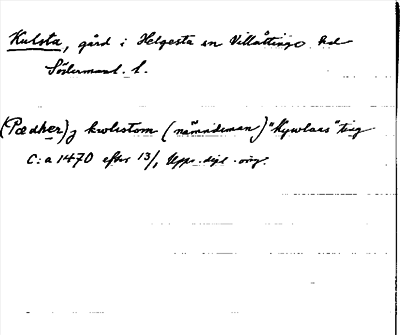 Kulsta, gård i Helgesta sn Villåttinge hd
Södermanl. l.
(Pædher) j kwlustom (nämndeman) "Kywlaas" ting
C:a 1470 efter 13/1 Upps. dipl. orig.